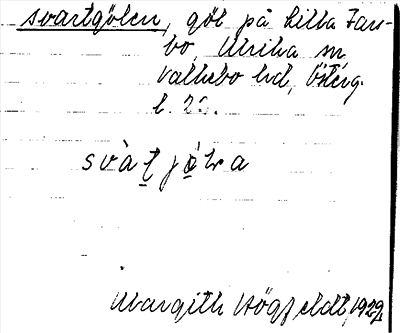 svartgölen, göl på Lilla Fan-
bo, Ulrika sn
Valkebo hd, Östérg.
l. 22.
svàt jȯ́lra
Margith Högfeldt, 1929.